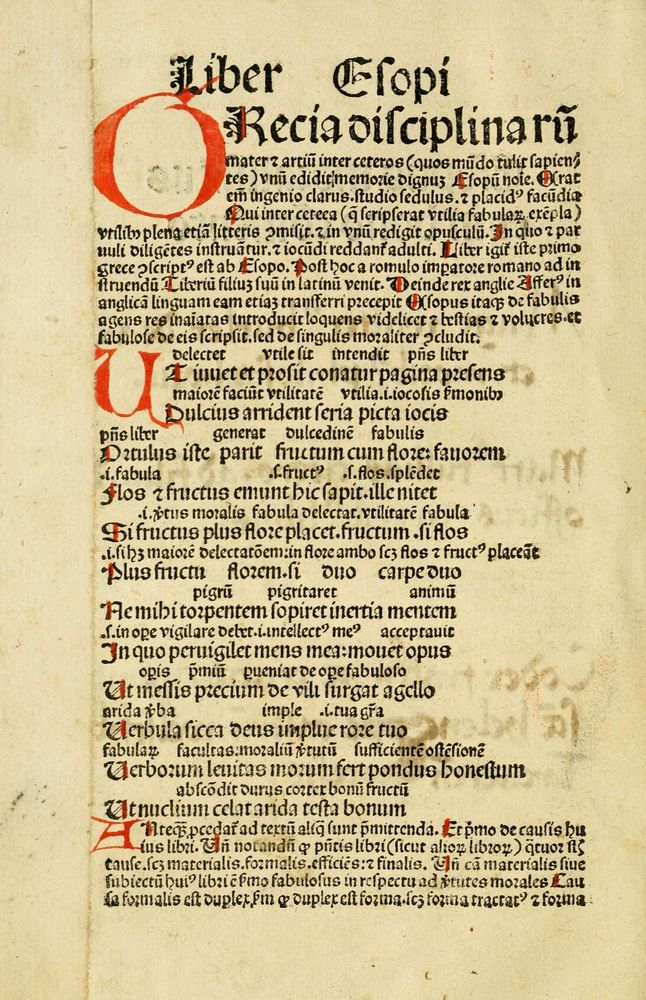 Liber Esopi
GRecia disciplinarū
mater ⁊ artiū inter ceteros (quos mūdo tulit sapien⸗
tes) vnū edidit memorie dignuꝫ Esopū noīe. Erat
em̄ ingenio clarus. studio sedulus. ⁊ placidꝰ facūdia
Qui inter ceteca (q̄ scripserat vtilia fabulaꝝ exēpla)
vtilibꝰ plena etiā litteris ꝯmisit. ⁊ in vnū redigit opusculū. In quo ⁊ par
uuli diligētes instruātur. ⁊ iocūdi reddant᷑ adulti. Liber igit᷑ iste primo
grece ꝯscriptꝰ est ab Esopo. Post hoc a romulo impatore romano ad in
struendū Tiberiū filiuꝫ suū in latinū venit. Deinde rex anglie Afferꝰ in
anglicā linguam eam etiaꝫ transferri precepit Esopus itaqꝫ de fabulis
agens res inaīatas introducit loquens videlicet ⁊ bestias ⁊ volucres. et
fabulose de eis scripsit. sed de singulis moraliter ꝯcludit.
delectet vtile sit intendit pn̄s liber
UT iuuet et prosit conatur pagina presens
maiorē faciūt vtilitatē vtilia .i. iocosis ẜmonibꝰ
Dulcius arrident seria picta iocis
pn̄s liber generat dulcedinē fabulis
Ortulus iste parit fructum cum flore: fauorem
.i. fabula .s. fructꝰ .s. flos. splēdet
Flos ⁊ fructus emunt hic sapit. ille nitet
.i. v̓tus moralis fabula delectat. vtilitatē fabula
Si fructus plus flore placet. fructum .si flos
.i. si hꝫ maiorē delectatōem: in flore ambo scꝫ flos ⁊ fructꝰ placeāt
Plus fructu florem. si duo carpe duo
pigrū pigritaret animū
Ne mihi torpentem sopiret inertia mentem
.s. in oꝑe vigilare debet .i. intellectꝰ meꝰ acceptauit
In quo peruigilet mens mea: mouet opus
oꝑis p̄miū ꝓueniat de oꝑe fabuloso
Ut messis precium de vili surgat agello
arida v̓ba imple .i. tua gr̄a
Uerbula sicca deus implue rore tuo
fabulaꝝ facultas: moraliū v̓tutū sufficientē ostēsionē
Uerborum leuitas morum fert pondus honestum
abscōdit durus cortex bonū fructū
Ut nucluum celat arida testa bonum
ANteqꝫ ꝓcedat᷑ ad textū aliq̄ sunt p̄mittenda. Et p̄mo de causis hu
ius libri. Un̄ notandū ꝙ pn̄tis libri (sicut alioꝝ libroꝝ) q̇tuor sūt
cause. scꝫ materialis. formalis. efficiēs: ⁊ finalis. Un̄ cā materialis siue
subiectū huiꝰ libri ē ẜmo fabulosus in respectu ad v̓tutes morales Cau
sa formalis est duplex. ẜm ꝙ duplex est forma. scꝫ forma tractatꝰ ⁊ forma